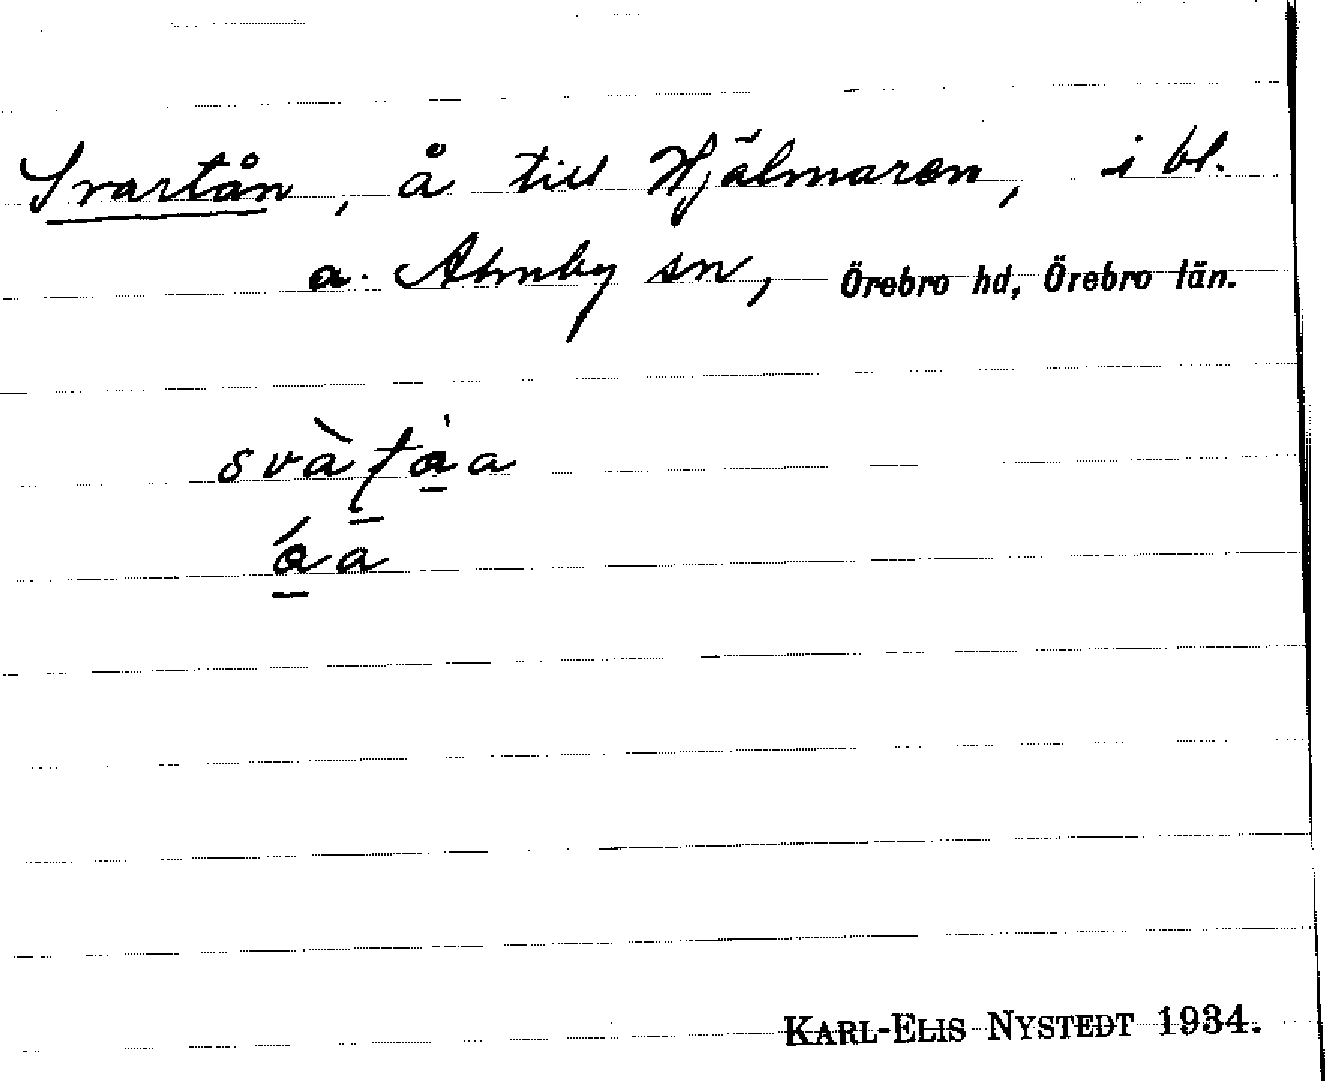 Svartån, å till Hjälmaren, i bl.
a. Almby sn, Örebro hd, Örebro län.
svàt̠a̠̍a
á̠a
KARL-ELIS NYSTEDT 1934.